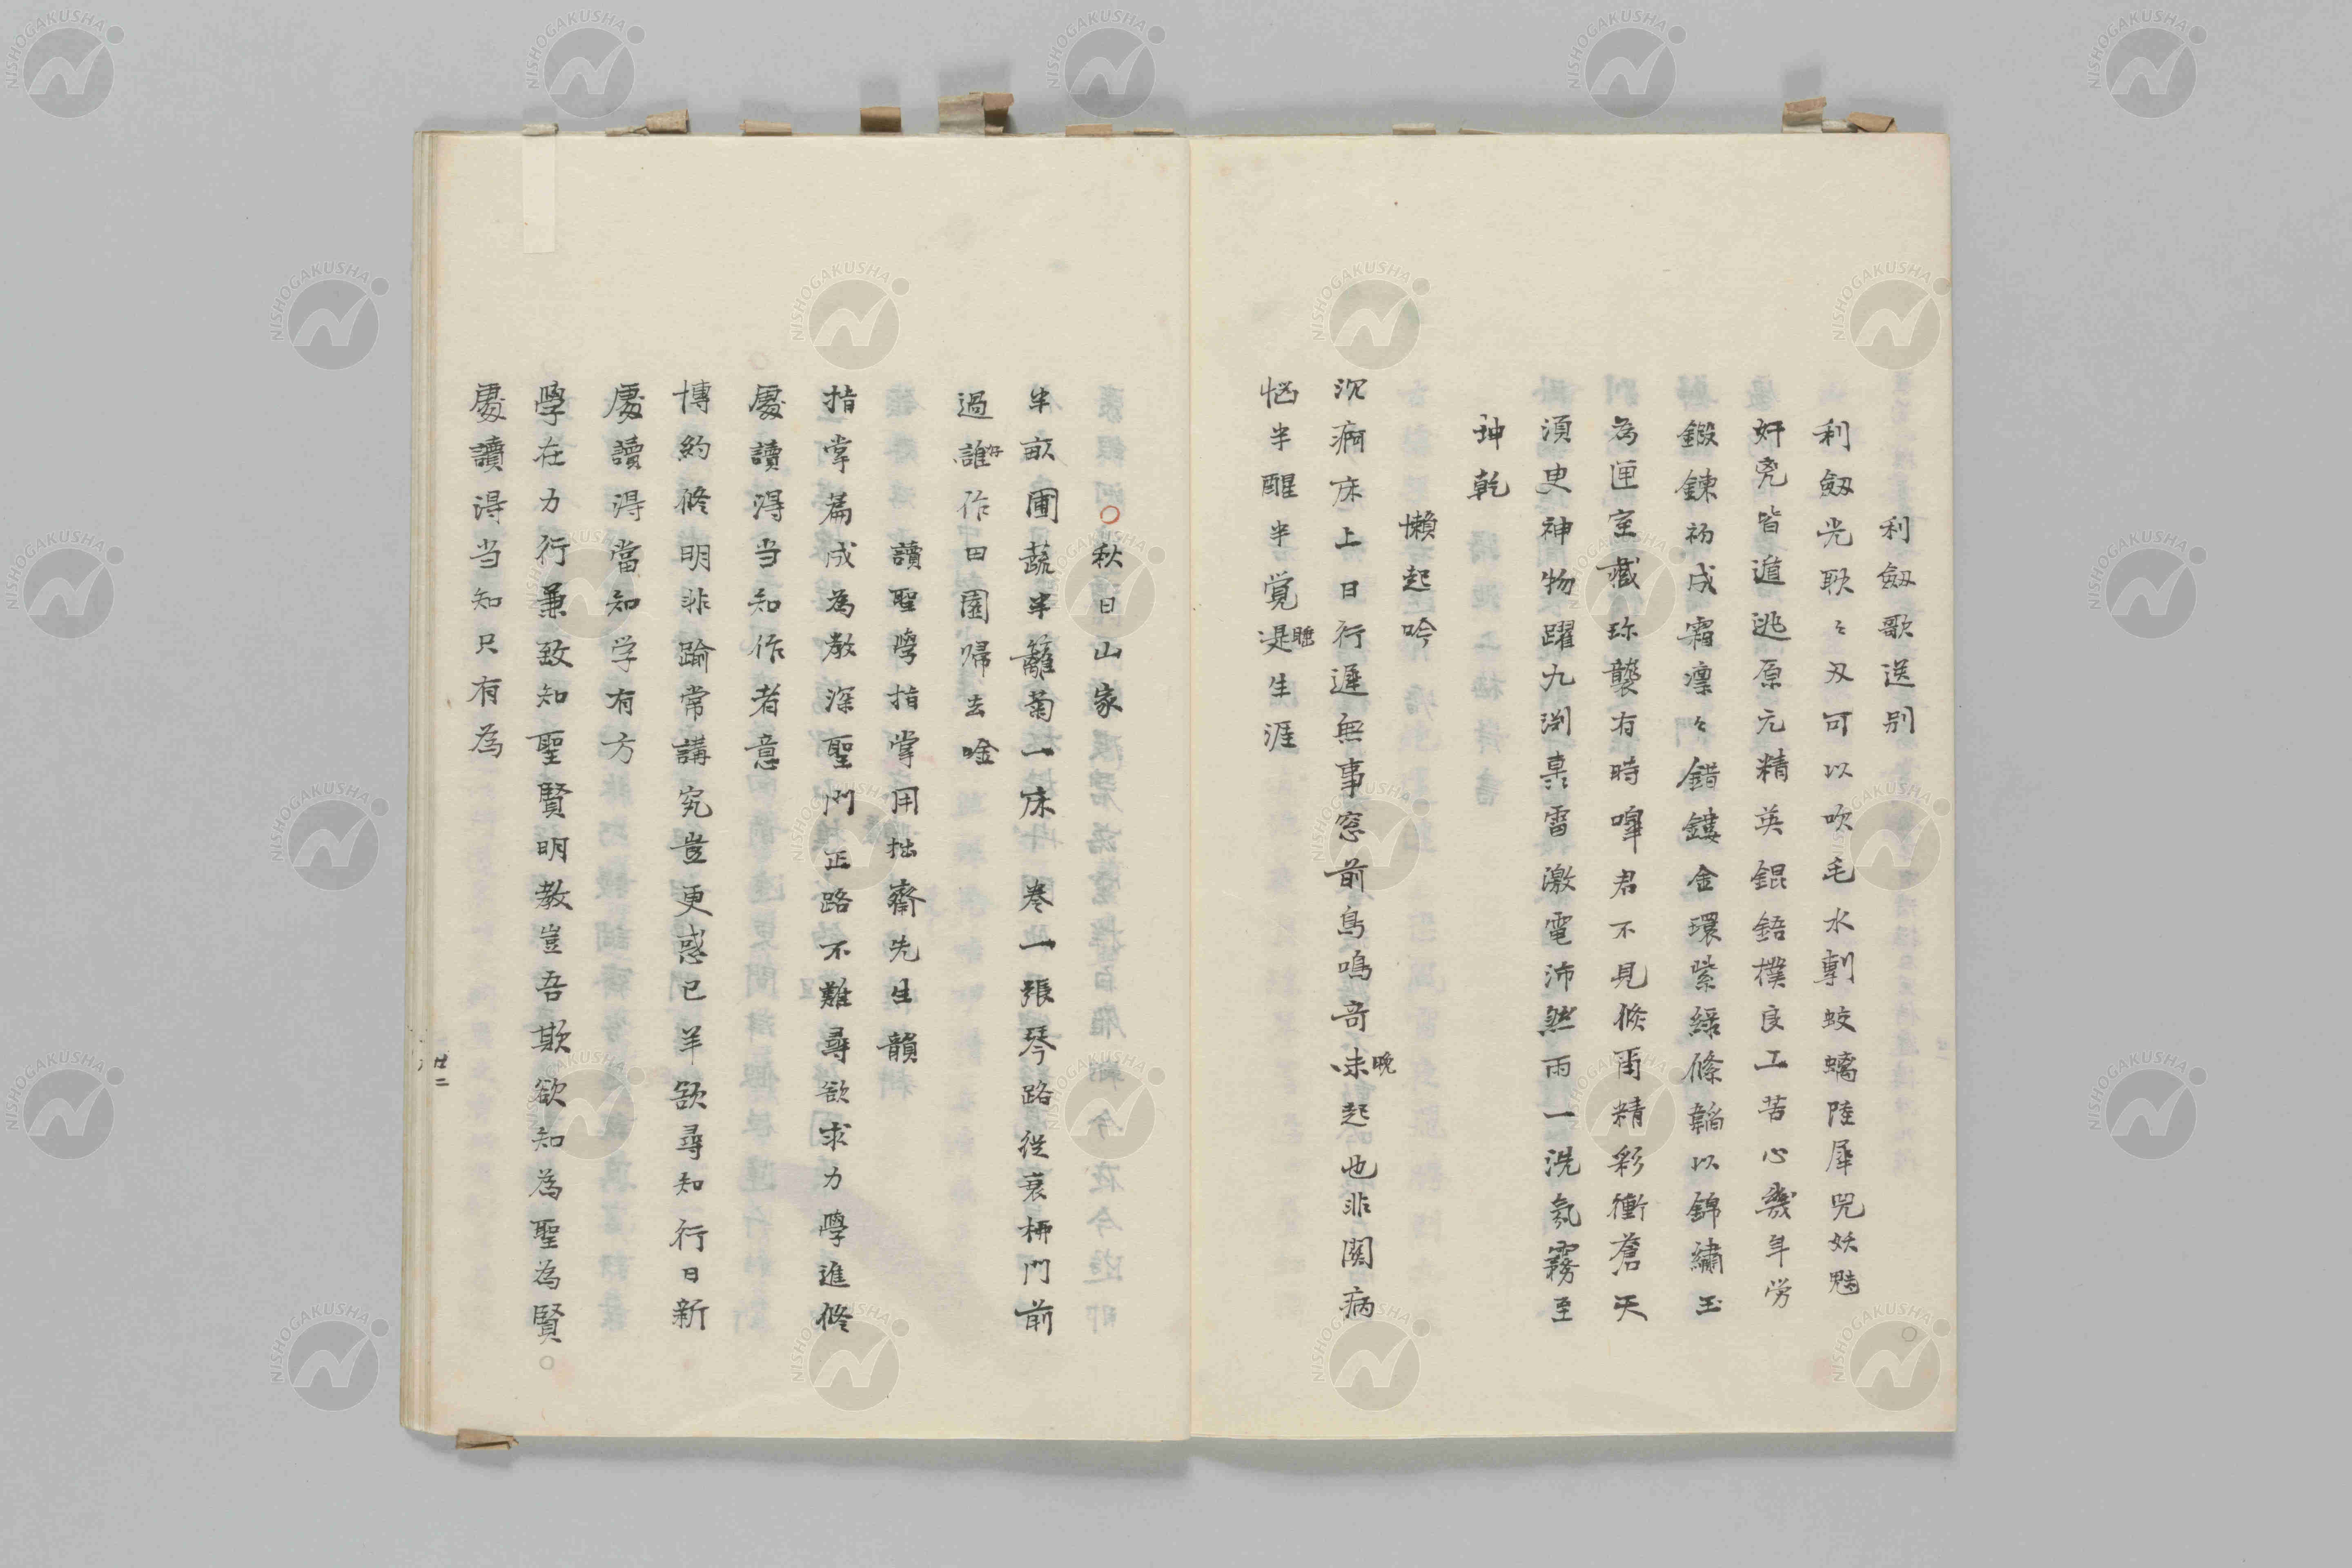 利劔歌送别
利劔光耿〻刃可以吹毛水剸蛟螭陸犀兕妖魅
奸兇皆遁逃原元精英錕鋙樸良工苦心幾年労
鍛錬初成霜凛〻錯鏤金環紫緑絛韜以錦繡玉
為匣室藏珎襲有時嘷君不見倏甭精彩衝蒼天
須臾神物躍九渕轟雷激電沛然雨一洗氛霧至
坤乾
懶起吟
沉痾床上日行遲無事窓前鳥鳴奇晩起也非関病
悩半醒半覚是睡生涯
秋日山家
半畝圃蔬半籬菊一床巻一張琴路従衰栁門前
過誰好作田園帰去唫
讀聖學指掌用拙齋先生韻
指掌篇成為教深聖門正路不難尋欲求力學進修
處讀淂当知作者意
博約修明非踰常講究豈更惑已羊欲尋知行日新
處讀淂當知学有方
學在力行兼致知聖賢明教豈吾欺欲知為聖為賢
處讀淂当知只有為
廿二
NISHOGAKUSHA